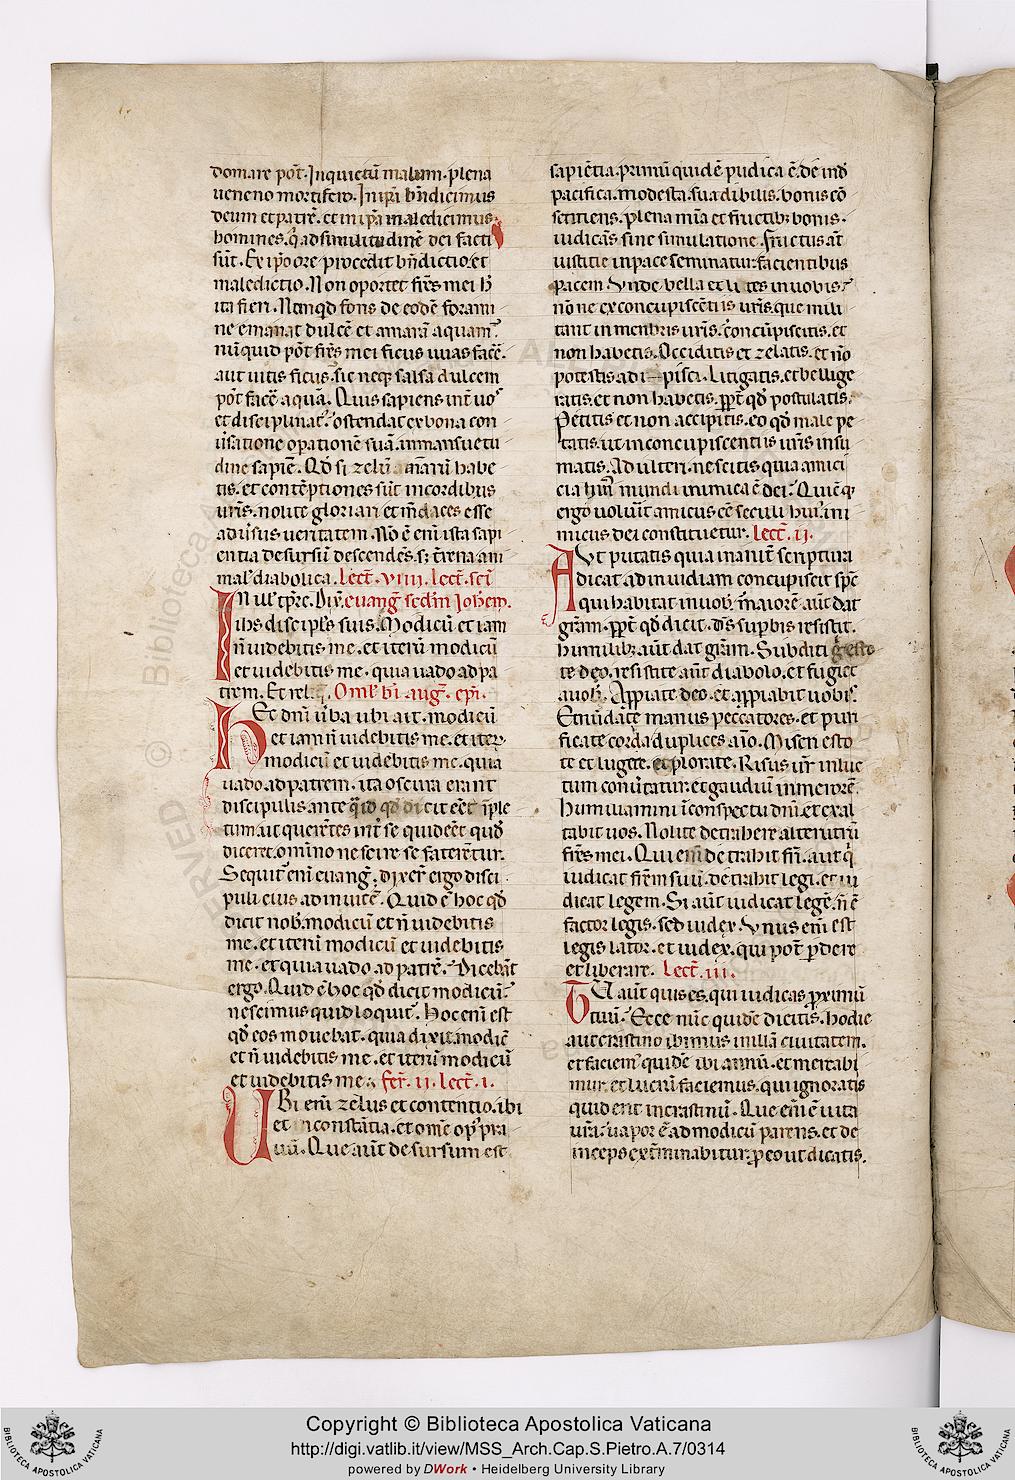 domare pōt. Inquietū malum. plena
ueneno mortifero. In ipā bn̄dicimus
deum et patrē. et in ip̄a maledicimus
homines. q̄ ad similitudinē dei facti
sūt. Ex ip̄o ore procedit bn̄dictio. et
maledictio. Non oportet fr̄es mei h̄
ita fieri. Nunqd fons de eodē forami
ne emanat dulcē et amarā aquam.
nūquid pōt fr̄es mei ficus uuas facē.
aut uitis ficus. sic neq; salsa dulcem
pōt facē aquā. Quis sapiens int̄ uos
et disciplinat'. ostendat ex bona con
u̓satione opationē suā. in mansuetu
dine sapiē. Qd̓ si zelū amarū habe
tis. et contēptiones sūt in cordibus
ur̄is. nolite gloriari et m̄daces esse
aduersus ueritatem. Nō ē eni ista sapi
entia desursū descendēs. s; t̄rena ani
mal' diabolica. Lect̄. viiii. Lect̄. sc̄i
In ill' tp̄re. Dix̄. euanḡ. sc̄dm Ioh̄em.
ih̄s discipl̓s suis. Modicū et iam
n̄ uidebitis me. et iterū modicū
et uidebitis me. quia uado ad pa
trem. Et reliq̄. Omel' b̄i aug̓. ep̄i.
Hec dn̄i u̓ba ubi ait. modicū
et iam n̄ uidebitis me. et iter̄
modicū et uidebitis me. quia
uado ad patrem. ita oscura erant
discipulis ante q̄ id qd̓ dicit eēt īple
tum. ut querētes int̄ se quid eēt quod̓
diceret. omnino nescire se faterētur.
Sequit' eni euang̓. dixer̄ ergo disci
puli eius ad inuicē. Quid ē hoc qd̓
dicit nob̓. modicū et n̄ uidebitis
me. et iterū modicū et uidebitis
me. et quia uado ad patrē. Dicebāt
ergo. Quid ē hoc qd̓ dicit modicū.
nescimus quid loquit'. Hoc eni est
qd̓ eos mouebat. quia dixit. modic̄
et n̄ uidebitis me. et iterū modicū
et uidebitis me. fer̄. ii. Lect̄. i.
UBi eni zelus et contentio. ibi
et inconstātia. et ome op' pra
uū. Que aūt desursum est
sapiētia. primū quidē pudica ē. deīnd̓
pacifica. modesta. suadibilis. bonis cō
sētiens. plena mīa et fructib; bonis.
iudicās sine simulatione. Fructus aūt
iustitie in pace seminatur. facientibus
pacem. Unde bella et lites in uobis.
nōne ex concupiscētiis ur̄is. que mili
tant in menbris ur̄is. cōncupiscitis. et
non habetis. Occiditis et zelatis. et nō
potestis adipisci. Litigatis. et bellige
ratis. et non habetis. pp̄t qd̓ postulatis.
Petitis et non accipitis. eo qd̓ male pe
tatis. ut in concupiscentiis ur̄is insu
matis. Adulteri. nescitis quia amici
cia hui' mundi inimica ē dei. Quicūq;
ergo voluīt amicus eē seculi hui'. ini
micus dei constituetur. Lect̄. ii.
AUt putatis quia inaniē scriptura
dicat. ad inuidiam concupiscit sp̄c
qui habitat in uob̓. maiorē aūt dat
gr̄am. pp̄t qd̓ dicit. d̄s sup̄bis resistit.
humilib; aūt dat gr̄am. Subditi g̓ esto
te deo. resistite aūt diabolo. et fugiet
a uob̓. Appīate deo. et appīabit uobis.
Emūdate manus peccatores. et puri
ficate corda duplices aīo. Miseri esto
te et lugete. et plorate. Risus ur̄ in luc
tum conu̓tatur. et gaudiū in merorē.
Humiliamini ī conspectu dn̄i. et exal
tabit uos. Nolite detrahere alterutrū
fr̄es mei. Qui eni detrahit fr̄i. aut q̓
iudicat fr̄em suū. detrahit legi. et iu
dicat legem. Si aūt iudicat legē. n̄ ē
factor legis. sed iudex. Unus eni est
legis lator. et iudex. qui pot̄ p̱dere
et liberare. Lect̄. iii.
TU aūt quis es. qui iudicas proximū
tuū. Ecce nūc quidē dicitis. hodie
aut crastino ibimus in illā ciuitatem.
et faciem' quidē ibi annū. et mercabi
mur. et lucrū faciemus. qui ignoratis
quid erit in crastinū. Que eni ē uita
ur̄a. uapor ē ad modicū parens. et de
inceps ext̄minabitur. p eo ut dicatis.
Copyright © Biblioteca Apostolica Vaticana
http://digi.vatlib.it/view/MSS_Arch.Cap.S.Pietro.A.7/0314
powered by DWork • Heidelberg University Library
BIBLIOTECA APOSTOLICA VATICANA
BIBLIOTECA APOSTOLICA VATICANA